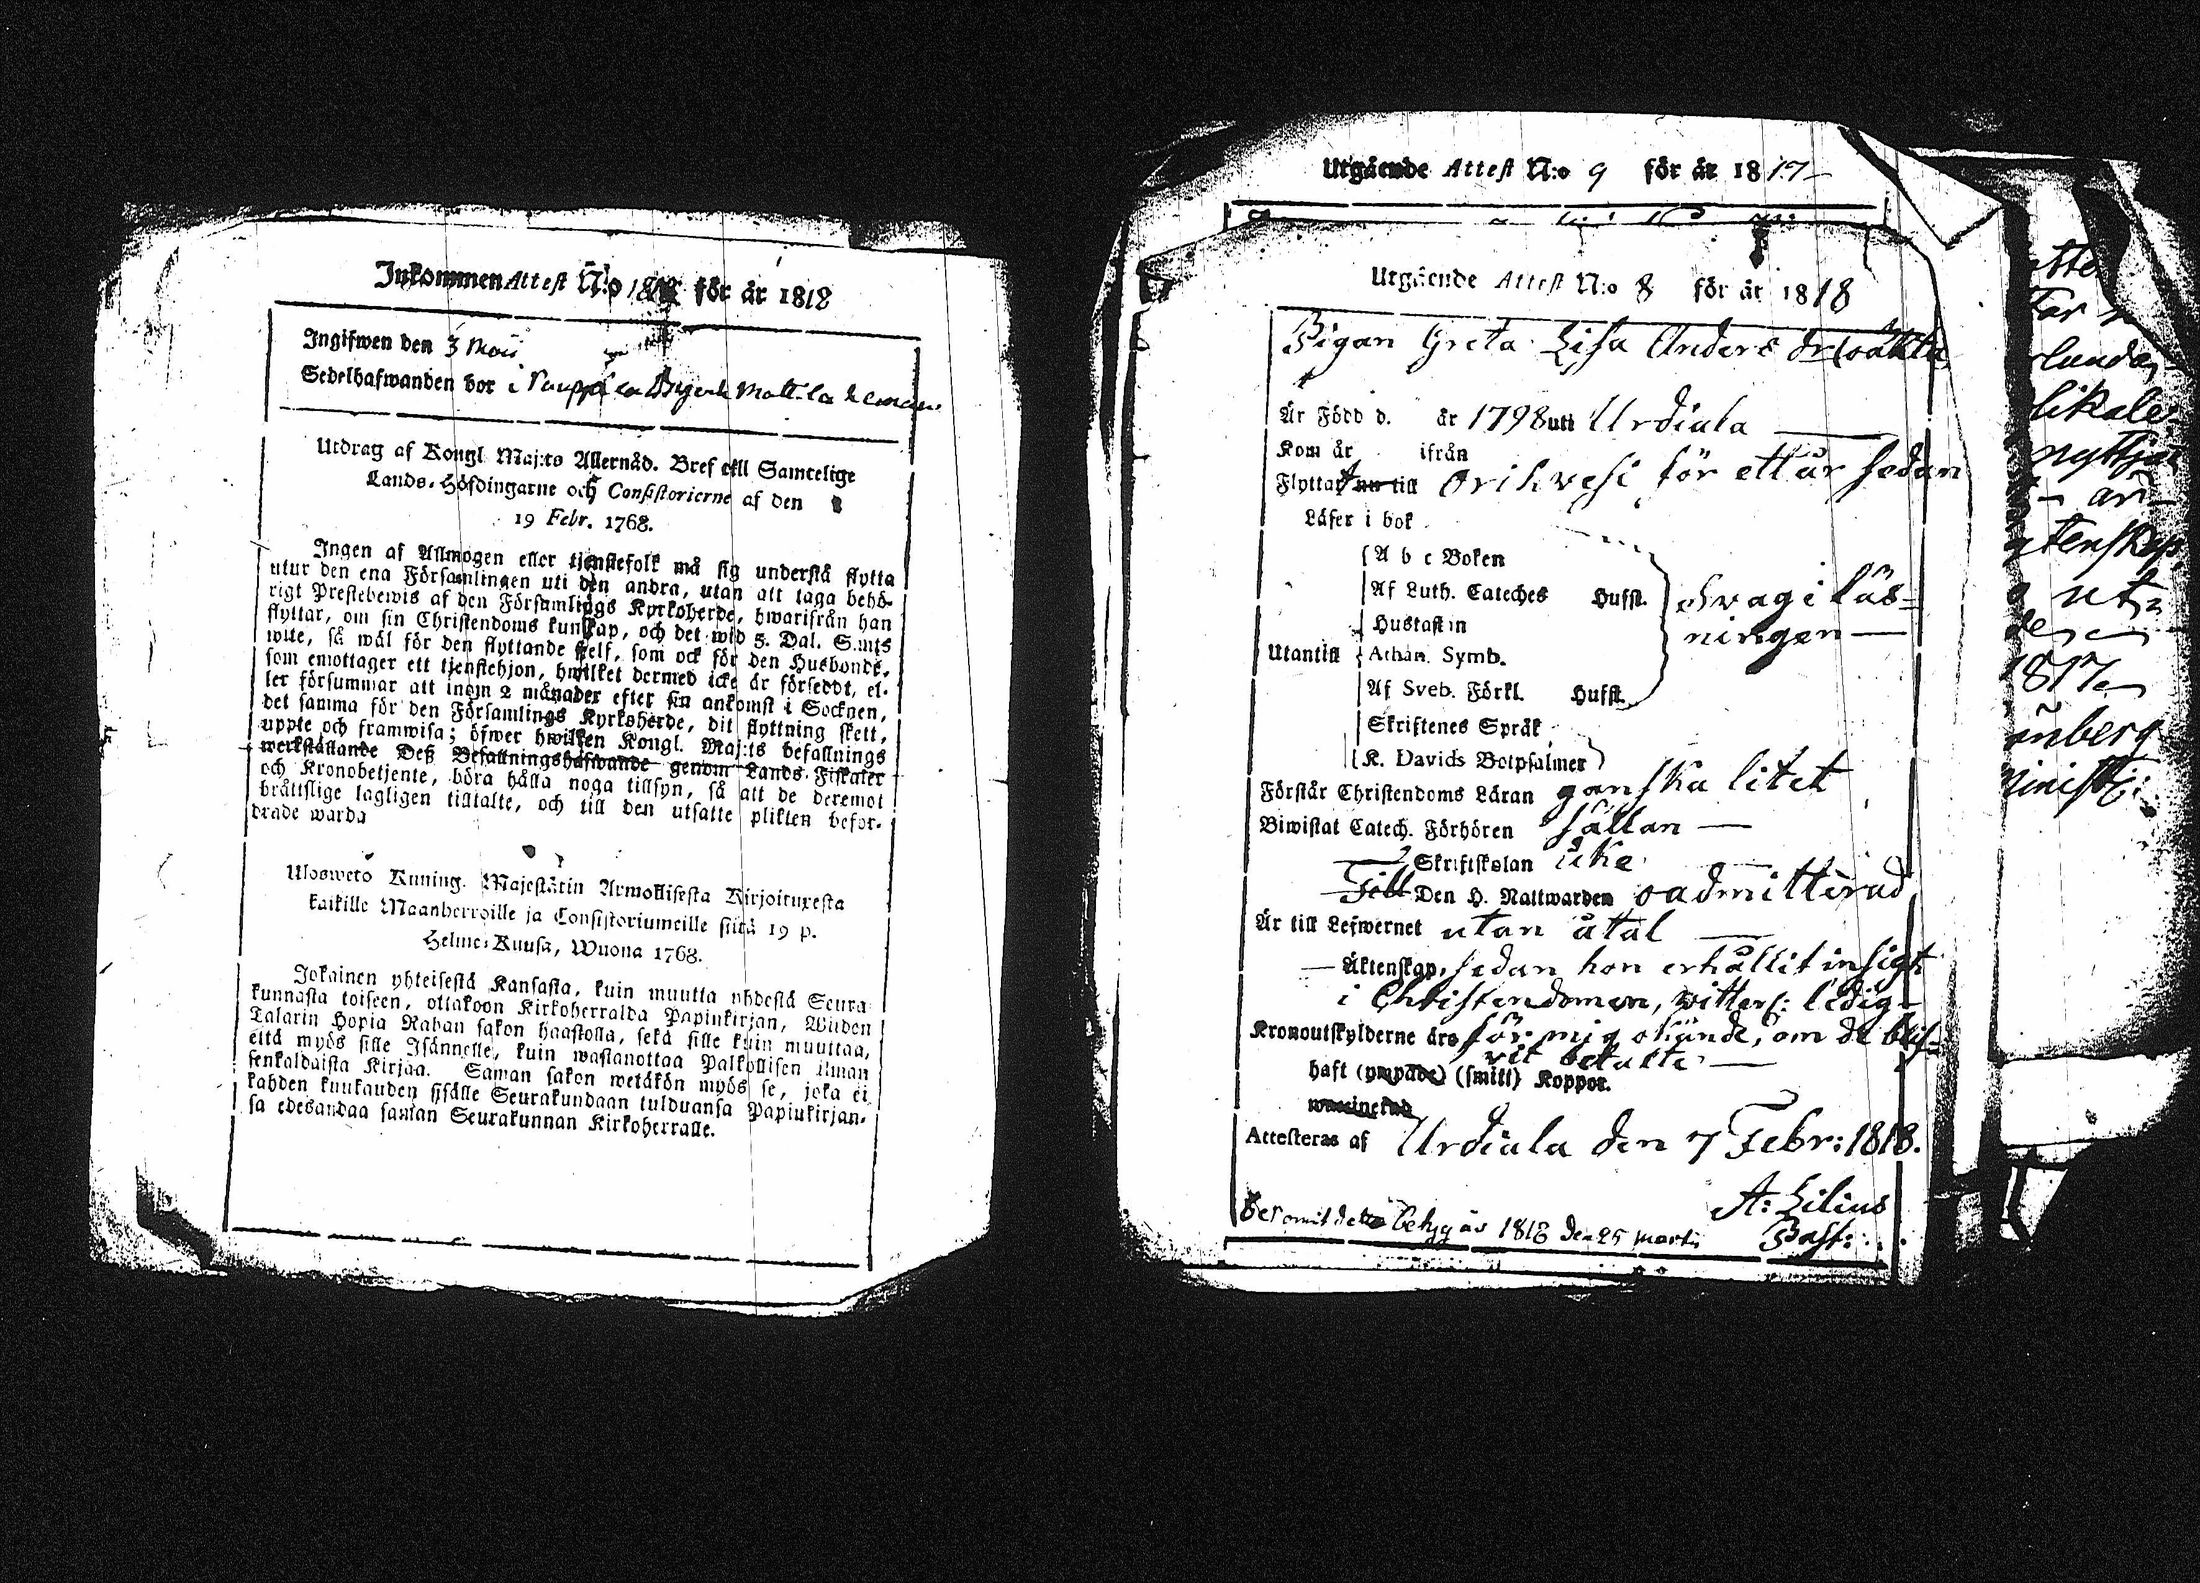 Inkommen Attest N:o för år 1818
Ingifwen den 3 Maii
Sedelhafwanden bor i
Utdrag af Kongl Maj:ts Allernåd. Bref till Samtelige
Lands-Höfdingarne och Consistorierne af den
19 Febr. 1768.
Ingen af Allmogen eller tjenstefolk må sig understå flytta
utur den ena Församlingen uti den andra, utan att taga behö-
rigt Prestebewis af den Församlings Kyrkoherde, hwarifrån han
flyttar, om sin Christendoms kunskap, och det wid 5. Dal. S.mts
wite, så wäl för den flyttande sielf, som ock för den Husbonde,
som emottager ett tjenstehjon, hwilket dermed icke är försedt, el-
ler försummar att inom 2 månader efter sin ankomst i Socknen,
det samma för den Församlings Kyrkoherde, dit flyttning skett,
uppte och framwisa; öfwer hwilken Kongl. Maj:ts befallnings
werkställande Deß Befallningshafwande genom Lands-Fiskaler
och Kronobetjente, böra hålla noga tillsyn, så att de deremot
bråttslige lagligen tilltalte, och till den utsatte plikten befor-
drade warda
Ulosweto Kuning. Majestätin Armollisesta Kirjoituxesta
kaikille Maanherroille ja Consistoriumeille siitä 19 p.
Helme-Kuusa, Wuona 1768.
Jokainen yhteisestä Kansasta, kuin muutta yhdestä Seura-
kunnasta toiseen, ottakoon Kirkoherralda Papinkirjan, Wiiden
Talarin Hopia Rahan sakon haastolla, sekä sille kuin muuttaa,
että myös sille Isännelle, kuin wastanottaa Palkollisen ilman
senkaldaista Kirjaa. Saman sakon wetäkön myös se, joka ei
kahden kuukauden sisälle Seurakundaan tulduansa Papinkirjan-
sa edesandaa saman Seurakunnan Kirkoherralle.
Utgående Attest N:o 9 för år 1817
Utgående Attest N:o 8 för år 1818
Pigan Greta Lisa Anders dr
Är Född d. år 1798 uti Urdiala
Kom år ifrån
Flyttat nu till Orihvesi för ett år sedan
Läser i bok
A b c Boken
Af Luth. Cateches Husst. svag i läs=
Hustaflin ningen
Utantill Athan. Symb.
Af Sveb. Förkl. Husst.
Skriftenes Språk
K. Davids Botpsalmer
Förstår Christendoms Läran ganska litet
Biwistat Catech. Förhören sällan
Skriftskolan icke
Till Den H. Nattwarden oadmitterad
Är till Lefwernet utan åtal
Äktenskap, sedan hon erhållit insigt
i Christendomen, vitterl: ledig
Kronoutskylderne äro för mig okände, om de blif=
vit betalte
haft (ympade) (smitt) Koppor.
waccinerad
Attesteras af Urdiala den 7 Febr: 1818.
A: Lilius
Past:
1818 den 25 martii
1817